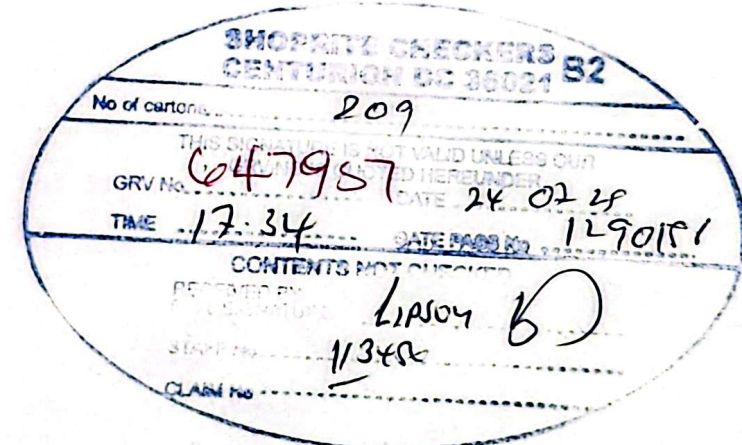 SHOPRITE CHECKERS B2
CENTURION DC 36021
No of cartons 209
THIS SIGNATURE IS NOT VALID UNLESS OUR
GRV No. IS NOTED HEREUNDER
GRV No. 647957 DATE 24 07 29
TIME 17:34 GATE PASS No 1290151
CONTENTS NOT CHECKED
RECEIVED BY
SIGNATURE
STAFF No. 113456
CLAIM No